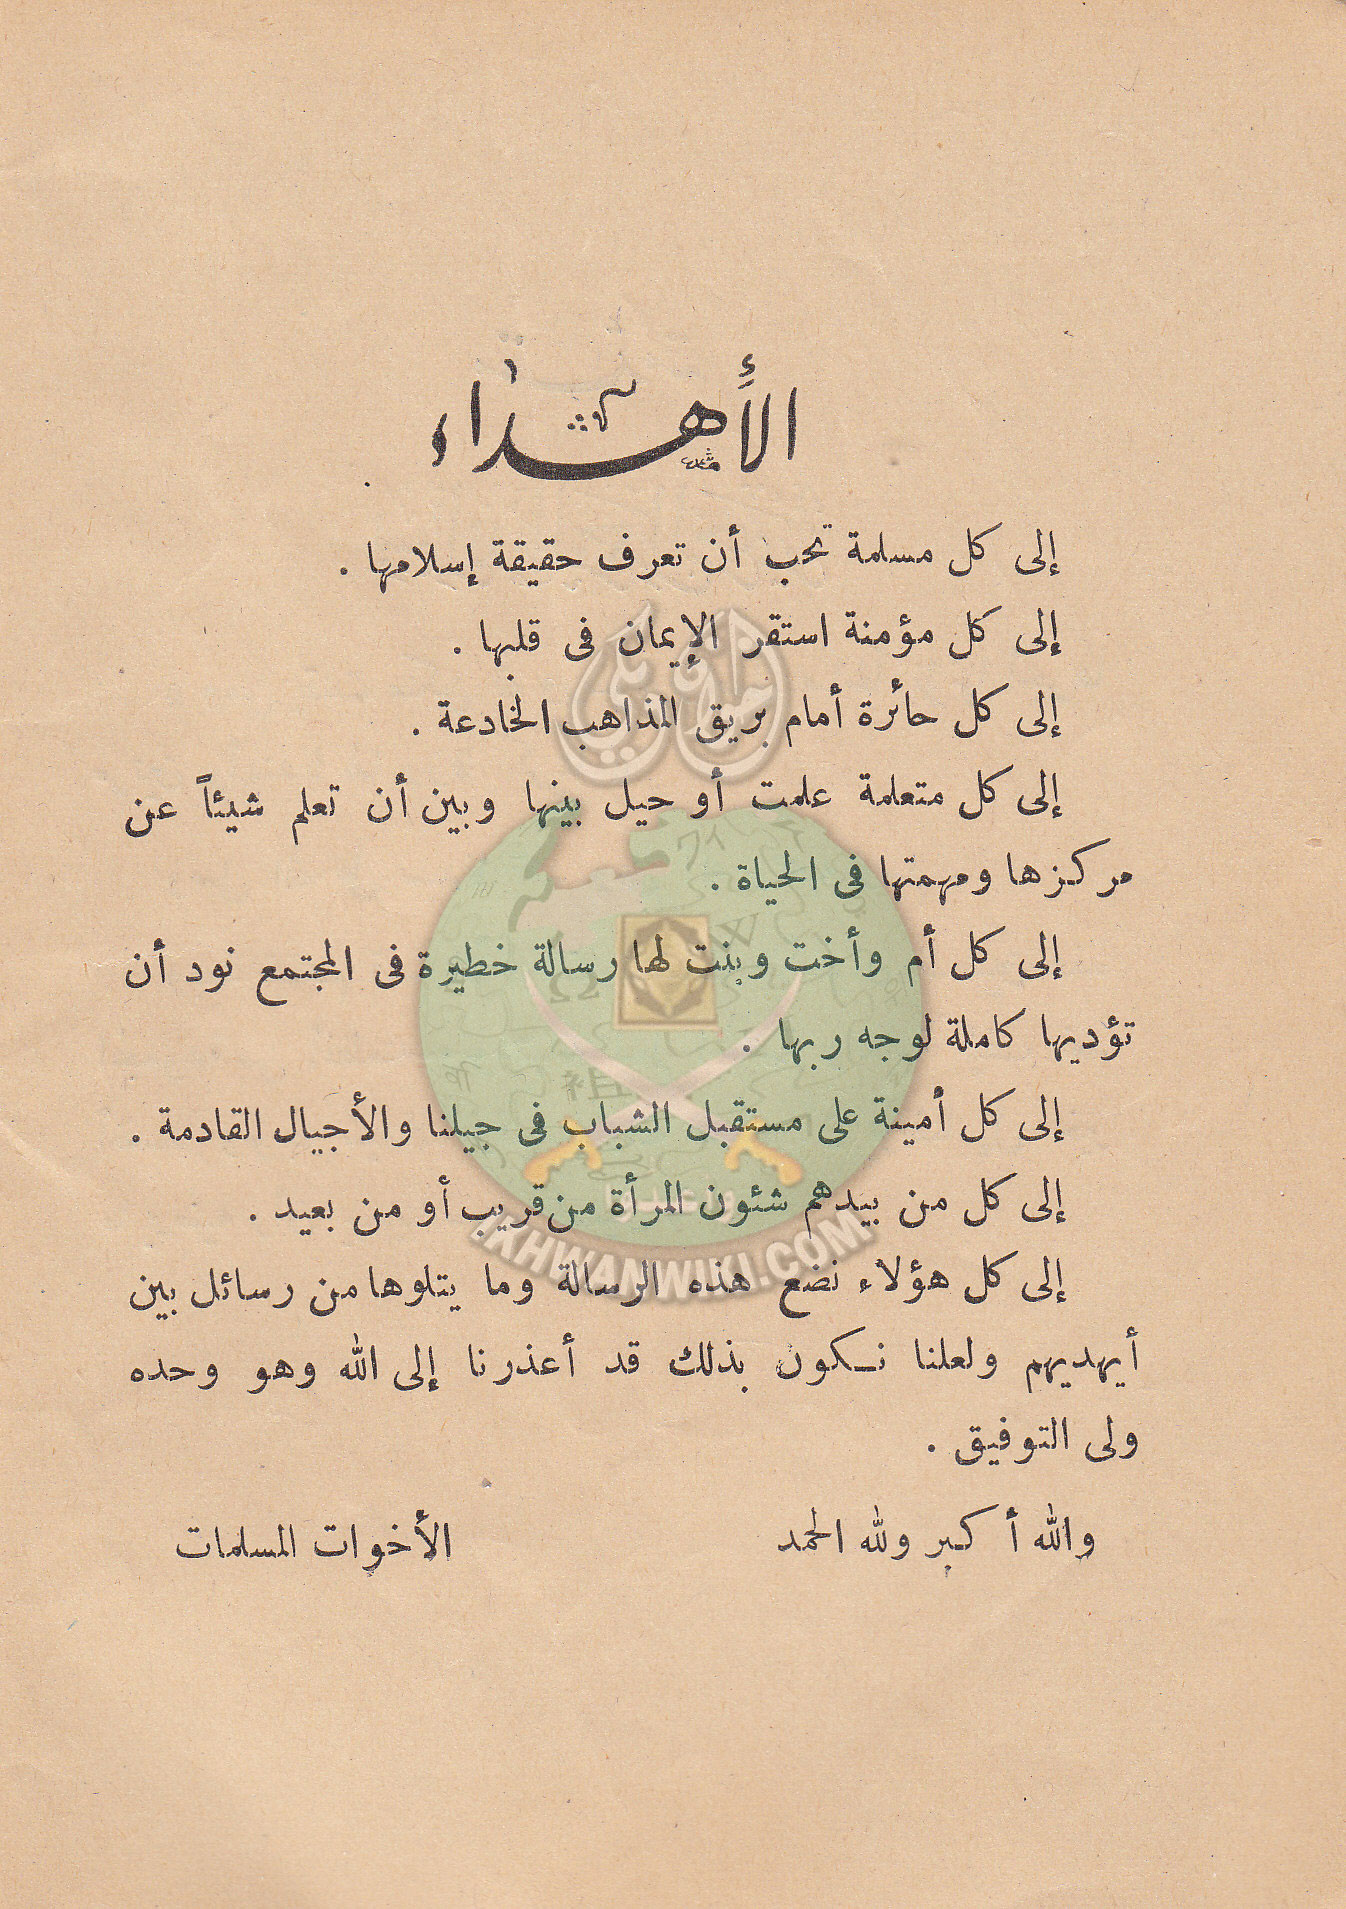 الأهداء
إلى كل مسلمة تحب أن تعرف حقيقة إسلامها .
إلى كل مؤمنة استقر الإيمان فى قلبها .
إلى كل حائرة أمام بريق المذاهب الخادعة .
إلى كل متعلمة علمت أو حيل بينها وبين أن تعلم شيئاً عن
مركزها ومهمتها فى الحياة .
إلى كل أم وأخت وبنت لها رسالة خطيرة فى المجتمع نود أن
تؤديها كاملة لوجه ربها .
إلى كل أمينة على مستقبل الشباب فى جيلنا والأجيال القادمة .
إلى كل من بيدهم شئون المرأة من قريب أو من بعيد .
إلى كل هؤلاء نضع هذه الرسالة وما يتلوها من رسائل بين
أيهديهم ولعلنا نكون بذلك قد أعذرنا إلى الله وهو وحده
ولى التوفيق .
والله أكبر ولله الحمد الأخوات المسلمات
إخوان ويكي
IKHWANWIKI.COM